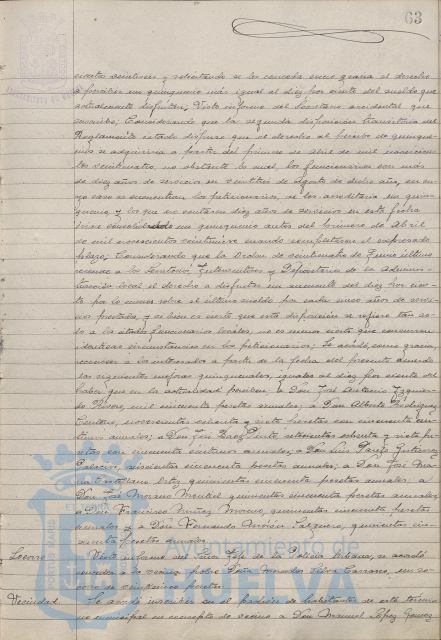 63
cientos veintinueve y solicitando se les conceda como gracia el derecho
a percibir un quinquenio más igual al diez por ciento del sueldo que
actualmente disfrutan, Visto informe del Secretario accidental que
suscribe; Considerando que la segunda disposición transitoria del
Reglamento citado dispuso que el derecho al percibo de quinque-
nios se adquiriría a partir del primero de Abril de mil novecien-
tos veinticuatro, no obstante lo cual, los funcionarios con más
de diez años de servicios en veintitres de Agosto de dicho año, en cu-
yo caso se encuentran los peticionarios, se les acreditaría un quin-
quenio, y los que no contaran diez años de servicios en esta fecha
un quinquenio antes del primero de Abril
de mil novecientos veintinueve cuando completaran el expresado
plazo; Considerando que la Orden de veinticuatro de Junio último
concede a los Secretarios, Interventores y Depositarios de la Adminis-
tración local el derecho a disfrutar un aumento del diez por cien-
to por lo menos sobre el último sueldo por cada cinco años de servi-
cios prestados, y si bien es cierto que esta disposición se refiere tan so-
lo a los citados funcionarios locales, no es menos cierto que concurren
idénticas circunstancias en los peticionarios; Se acordó, como gracia,
reconocer a los interesados a partir de la fecha del presente acuerdo
las siguientes mejoras quinquenales, iguales al diez por ciento del
haber que en la actualidad perciben; a Don José Antonio Izquier-
do Rivero, mil cincuenta pesetas anuales; a Don Alberto Rodríguez
Centeno, novecientas setenta y siete pesetas con cincuenta cén-
timos anuales; a Don José Baez setecientas ochenta y siete pe-
setas con cincuenta céntimos anuales; a Don Luis Gutierrez
seiscientas cincuenta pesetas anuales; a Don José Ma-
ría quinientas cincuenta pesetas anuales; a
Don José Moreno Montiel quinientas cincuenta pesetas anuales,
a Don Francisco Muñoz Moreno, quinientas cincuenta pesetas
anuales y a Don Fernando quinientas cin-
cuenta pesetas anuales.
Socorro Visto informe del Señor Jefe de la Policía Urbana, se acordó
conceder a la vecina pobre Doña un so-
corro de veinticinco pesetas.
Vecindad. Se acordó inscribir en el padrón de habitantes de este término
municipal en concepto de vecino a Don Manuel López Gómez
Ayuntamiento de
HUELVA